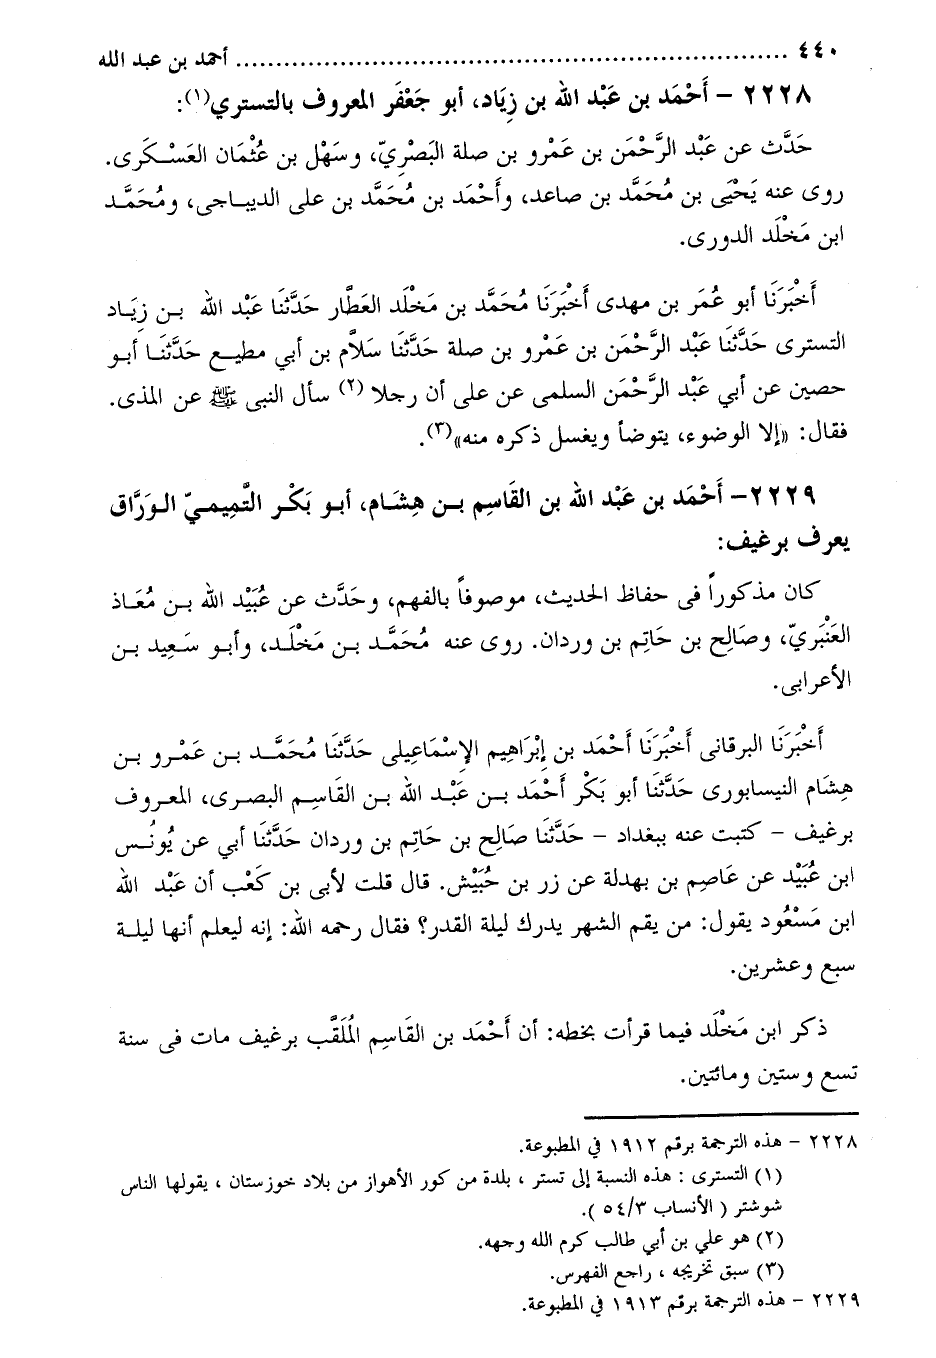 ٤٤٠ ........................................................................ أحمد بن عبد الله
٢٢٢٨ – أَحْمَد بن عَبْد الله بن زِيَاد، أبو جَعْفَر المعروف بالتستري(١):
حَدَّث عن عَبْد الرَّحْمَن بن عَمْرو بن صلة البَصْرِيّ، وسَهْل بن عُثْمَان العَسْكَرى.
روى عنه يَحْيَى بن مُحَمَّد بن صاعد، وأَحْمَد بن مُحَمَّد بن على الديباجى، ومُحَمَّد
ابن مَخْلَد الدورى.
أَخْبَرَنَا أبو عُمَر بن مهدى أَخْبَرَنَا مُحَمَّد بن مَخْلَد العَطَّار حَدَّثَنَا عَبْد الله بن زِيَاد
التسترى حَدَّثَنَا عَبْد الرَّحْمَن بن عَمْرو بن صلة حَدَّثَنَا سَلاَّم بن أبي مطيع حَدَّثَنَا أبو
حصين عن أبي عَبْد الرَّحْمَن السلمى عن على أن رجلا (٢) سأل النبى ﷺ عن المذى.
فقال: «إلا الوضوء، يتوضأ ويغسل ذكره منه»(٣).
٢٢٢٩– أَحْمَد بن عَبْد الله بن القَاسِم بن هِشَام، أبو بَكْر التَّمِيمـيّ الوَرَّاق
يعرف برغيف:
كان مذكوراً فى حفاظ الحديث، موصوفاً بالفهم، وحَدَّث عن عُبَيْد الله بن مُعَاذ
العَنْبَرِيّ، وصَالِح بن حَاتِم بن وردان. روى عنه مُحَمَّد بن مَخْلَد، وأبو سَعِيد بن
الأعرابى.
أَخْبَرَنَا البرقانى أَخْبَرَنَا أَحْمَد بن إبْرَاهِيم الإسْمَاعِيلى حَدَّثَنَا مُحَمَّد بن عَمْرو بن
هِشَام النيسابورى حَدَّثَنَا أبو بَكْر أَحْمَد بن عَبْد الله بن القَاسِم البصرى، المعروف
برغيف – كتبت عنه ببغداد – حَدَّثَنَا صَالِح بن حَاتِم بن وردان حَدَّثَنَا أبي عن يُونُس
ابن عُبَيْد عن عَاصِم بن بهدلة عن زر بن حُبَيْش. قال قلت لأبى بن كَعْب أن عَبْد الله
ابن مَسْعُود يقول: من يقم الشهر يدرك ليلة القدر؟ فقال رحمه الله: إنه ليعلم أنها ليلة
سبع وعشرين.
ذكر ابن مَخْلَد فيما قرأت بخطه: أن أَحْمَد بن القَاسِم المُلَقَّب برغيف مات فى سنة
تسع وستين ومائتين.
٢٢٢٨ – هذه الترجمة برقم ١٩١٢ في المطبوعة.
(١) التسترى : هذه النسبة إلى تستر ، بلدة من كور الأهواز من بلاد خوزستان ، يقولها الناس
شوشتر ( الأنساب ٥٤/٣ ).
(٢) هو علي بن أبي طالب كرم الله وجهه.
(٣) سبق تخريجه ، راجع الفهرس.
٢٢٢٩ – هذه الترجمة برقم ١٩١٣ في المطبوعة.